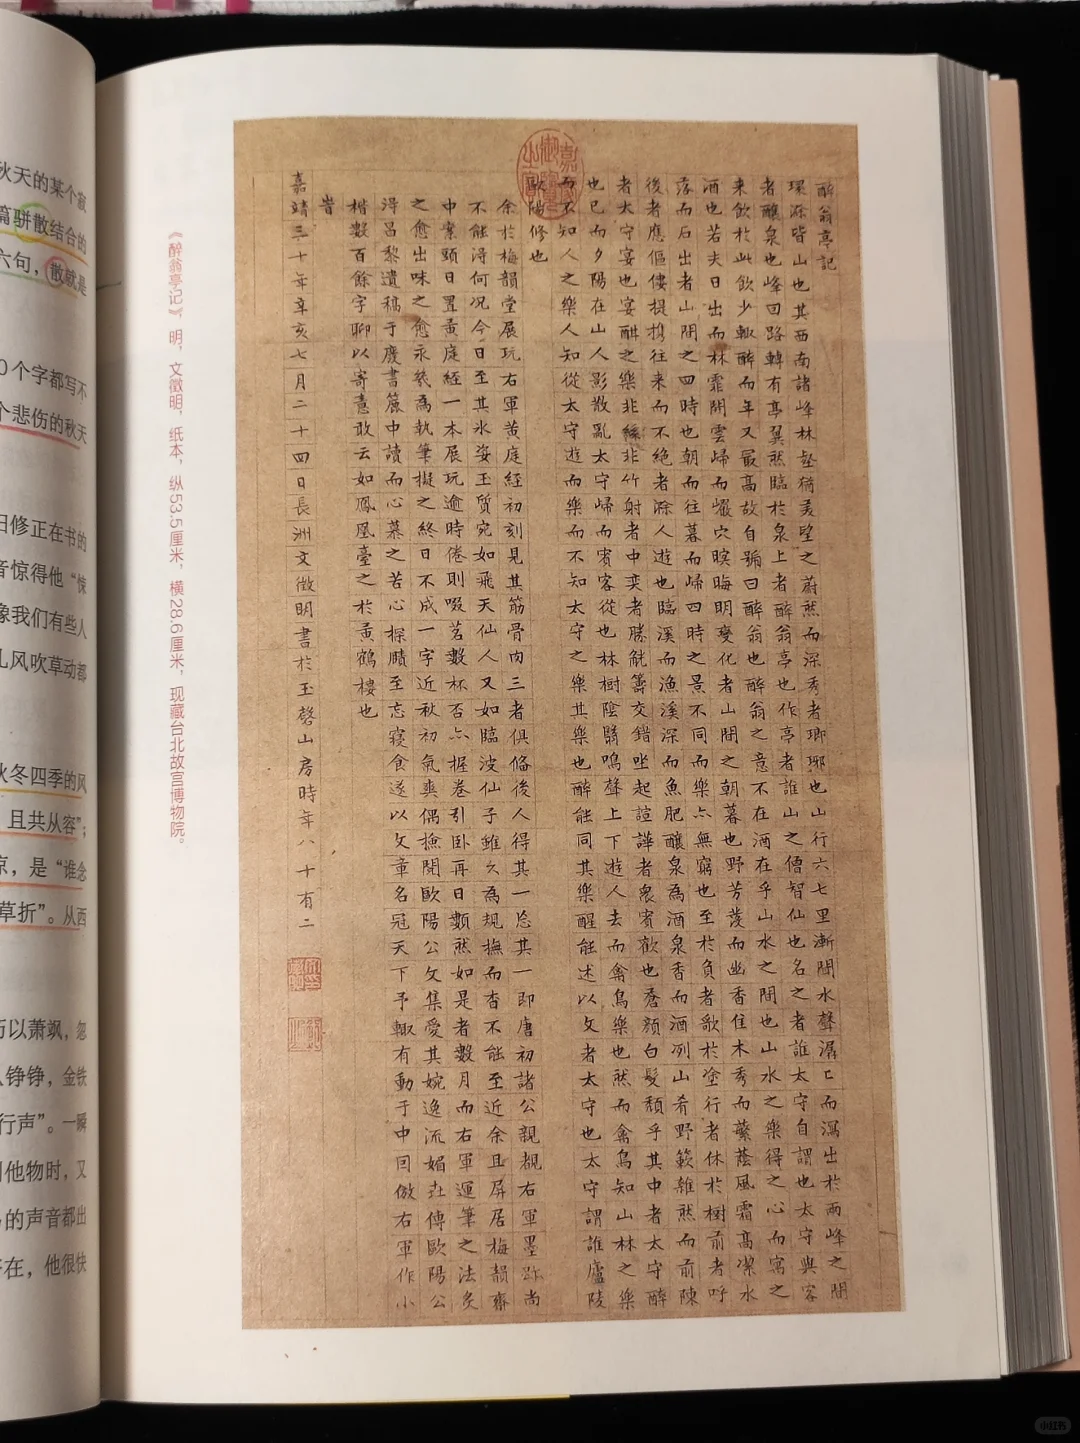 秋天的某个寂
篇骈散结合的
六句，散就是
0个字都写不
个悲伤的秋天
日修正在书的
音惊得他“悚
像我们有些人
儿风吹草动都
秋冬四季的风
且共从容”；
京，是“谁念
草折”。从西
历以萧飒，忽
从铮铮，金铁
行声”。一瞬
的声音都出
存在，他很快
《醉翁亭记》，明，文徵明，纸本，纵53.5厘米，横28.6厘米，现藏台北故宫博物院。
醉翁亭記
環滁皆山也其西南諸峰林壑猶美望之蔚然而深秀者瑯琊也山行六七里漸聞水聲潺〻而瀉出於兩峰之間
者釀泉也峰回路轉有亭翼然臨於泉上者醉翁亭也作亭者誰山之僧智仙也名之者誰太守自謂也太守與客
來飲於此飲少輒醉而年又最高故自號曰醉翁也醉翁之意不在酒在乎山水之間也山水之樂得之心而寓之
酒也若夫日出而林霏開雲歸而巖穴暝晦明變化者山間之朝暮也野芳發而幽香佳木秀而蘩蔭風霜高潔水
落而石出者山間之四時也朝而往暮而歸四時之景不同而樂亦無窮也至於負者歌於塗行者休於樹前者呼
後者應傴僂提携往来而不絕者滁人遊也臨溪而漁溪深而魚肥釀泉為酒泉香而酒冽山肴野蔌雜然而前陳
者太守宴也宴酣之樂非絲非竹射者中奕者勝觥籌交錯坐起諠譁者衆賓歡也蒼顏白髮頹乎其中者太守醉
也已而夕陽在山人影散亂太守歸而賓客從也林樹陰翳鳴聲上下遊人去而禽鳥樂也然而禽鳥知山林之樂
而不知人之樂人知從太守遊而樂而不知太守之樂其樂也醉能同其樂醒能述以文者太守也太守謂誰廬陵
歐陽修也
余於梅韻堂展玩右軍黄庭經初刻見其筋骨肉三者俱俻後人得其一忘其一即唐初諸公親覩右軍墨跡尚
不能淂何况今日至其氷姿玉質宛如飛天仙人又如臨波仙子雖久為規撫而杳不能至近余且屏居梅韻齋
中案頭日置黄庭經一本展玩逾時倦則啜茗數杯否亦握卷引卧再日䫫然如是者數月而右軍運筆之法炙
之愈出味之愈永然為執筆擬之終日不成一字近秋初氣爽偶撿開歐陽公文集愛其婉逸流媚𠀤傳歐陽公
淂昌黎遺稿于廢書簏中讀而心慕之苦心探賾至忘寢食遂以文章名冠天下予輒有動于中因倣右軍作小
楷數百餘字聊以寄意敢云如鳳凰臺之於黄鶴樓也
旹
嘉靖三十年辛亥七月二十四日長洲文徵明書於玉磬山房時年八十有二
小红书